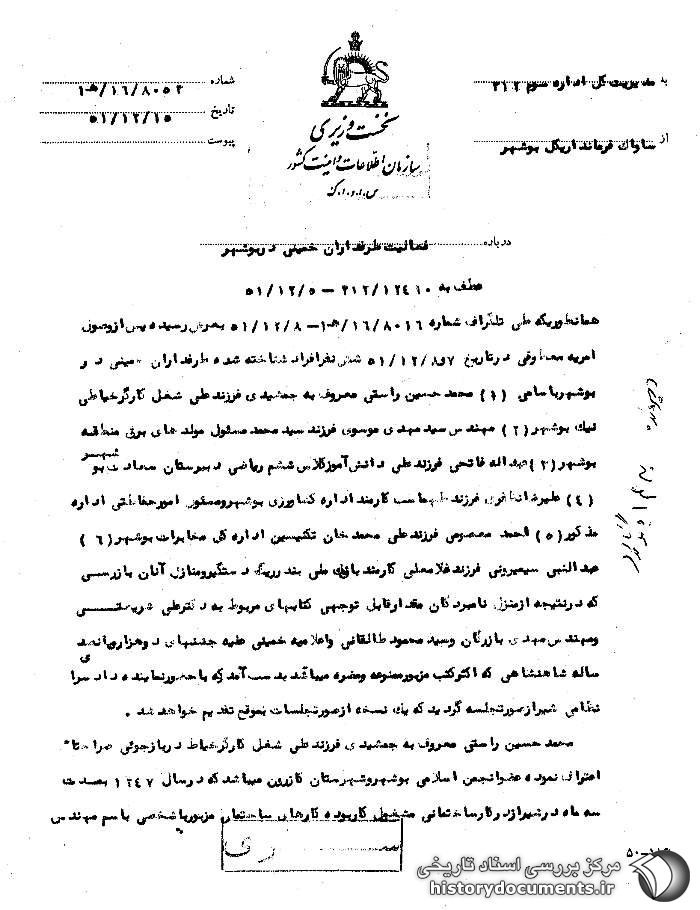 به مدیریت کل اداره سوم ۳۱۲
از ساواك فرمانداریکل بوشهر
نخست وزیری
سازمان اطلاعات و امنیت کشور
س.ا.و.ا.ک
شماره ۸۰۵۲/۱۶/ه۱
تاریخ ۵۱/۱۲/۱۵
پیوست
درباره فعالیت طرفداران خمینی در بوشهر
عطف به ۳۱۲/۱۲۴۱۰ – ۵۱/۱۲/۵
همانطوریکه طی تلگراف شماره ۸۰۱۶/۱۶/ه۱ – ۵۱/۱۲/۸ بعرض رسیده پس از وصول
امریه معطوفی در تاریخ ۷و۵۱/۱۲/۸ شش نفر افراد شناخته شده طرفداران خمینی در
بوشهر باسامی (۱) محمد حسین راستی معروف به جمشیدی فرزند علی شغل کارگر خیاطی
نیك بوشهر (۲) مهندس سید مهدی موسوی فرزند سید محمد مسئول مولد های برق منطقه
بوشهر (۳) عبداله فاتحی فرزند علی دانش آموز کلاس ششم ریاضی دبیرستان سعادت بوشهر
(۴) علیرضا فرزند طهماسب کارمند اداره کشاورزی بوشهر و مسئول امور حفاظتی اداره
مذکور (۵) احمد معصومی فرزند علی محمد خان تکنیسین اداره کل مخابرات بوشهر (۶)
عبدالنبی فرزند غلامعلی کارمند بانك ملی بندر ریگ دستگیر و منازل آنان بازرسی
که در نتیجه از منزل نامبردگان مقدار قابل توجهی کتابهای مربوط به دکتر علی شریعتی
و مهندس مهدی بازرگان و سید محمود طالقانی و اعلامیه خمینی علیه جشنهای دوهزار و پانصدی
ساله شاهنشاهی که اکثر کتب مزبور ممنوعه و مضره میباشد بدست آمد که با حضور نماینده دادسرا
نظامی شیراز صورتجلسه گردید که یك نسخه از صورتجلسات بموقع تقدیم خواهد شد .
محمد حسین راستی معروف به جمشیدی فرزند علی شغل کارگر خیاط در بازجوئی صراحتا"
اعتراف نموده عضو انجمن اسلامی بوشهر و شهرستان کازرون میباشد که در سال ۱۳۴۷ بمدت
سه ماه در شیراز در کار ساختمانی مشغول کار بوده کارهای ساختمان مزبور با شخصی باسم مهندس
سری
مرکز بررسی اسناد تاریخی
historydocuments.ir